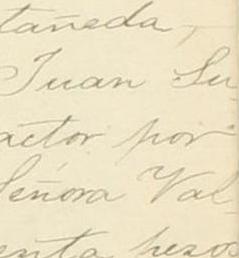 tañeda,
Juan Su-
actor por
Señora Val-
enta pesos